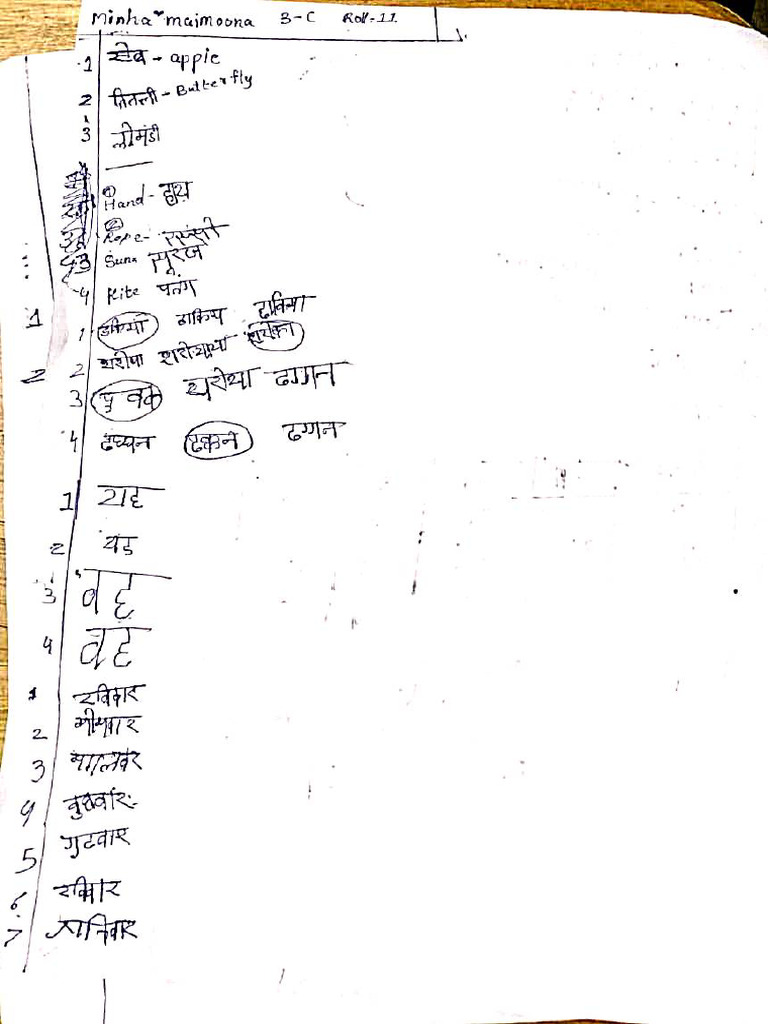 Minha maimoona 3-C Roll-11
1 सेब - apple
2 तितली - Butterfly
3 लोमडी
① Hand - हाथ
② Rope - रस्सी
3 Sun सूरज
4 Kite पतंग
1
1 डाकिया ढाकिय ढाकिया
2
2 शरीपा
3 ढगगन
4 ढघ्घन ढक्कन ढगगन
1 यह
2 यह
3 वह
4 वह
1 रविवार
2 सोमवार
3 मगलवर
4 बुधवार
5 गुरुवार
6 रविवार
7 शानिवार